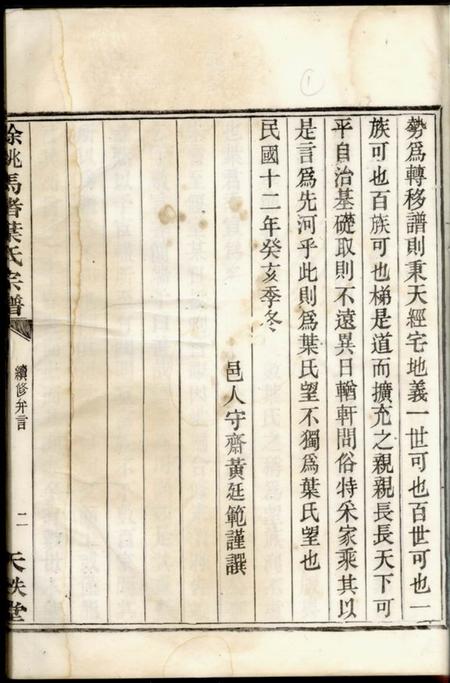 勢爲轉移譜則秉天經宅地義一世可也百世可也一
族可也百族可也梯是道而擴充之親親長長天下可
平自治基礎取則不遠異日輶軒問俗特采家乘其以
是言爲先河乎此則爲葉氏望不獨爲葉氏望也
民國十二年癸亥季冬
邑人守齋黃廷範謹譔
餘姚馬者葉氏宗譜
續修弁言
二
天秩堂